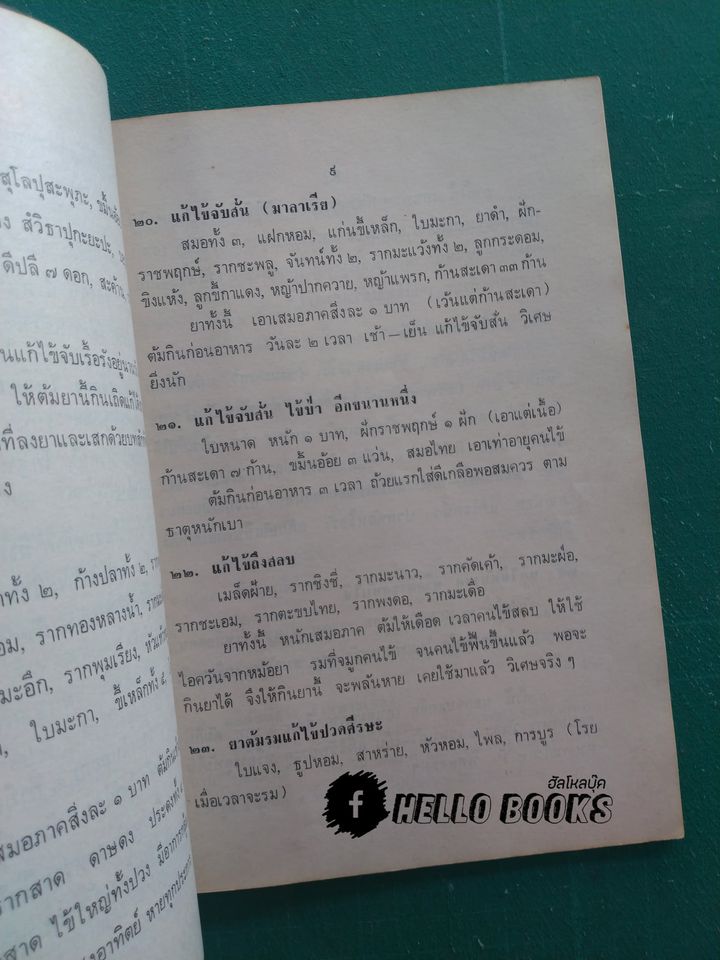 สุโลปุสะพุภะ, ขมิ้นอ้อย
สํวิธาปุกะยะปะ,
ดีปลี ๗ ดอก, สะค้าน,
แก้ไข้จับเรื้อรังอยู่นาน
ให้ต้มยานี้กินเถิดแก้ได้
ที่ลงยาและเสกด้วยบท
ง
ทั้ง ๒, ก้างปลาทั้ง ๒,
อม, รากทองหลางน้ำ,
มะอึก, รากพุมเรียง,
ใบมะกา, ขี้เหล็กทั้ง ๕,
สมอภาคสิ่งละ ๑ บาท ต้มกิน
รากสาด ดาษดง ประดง
สาด ไข้ใหญ่ทั้งปวง มีอาการ
อาทิตย์ หายทุกประการ
๙
๒๐. แก้ไข้จับสั่น (มาลาเรีย)
สมอทั้ง ๓, แฝกหอม, แก่นขี้เหล็ก, ใบมะกา, ยาดำ, ฝัก-
ราชพฤกษ์, รากชะพลู, จันทน์ทั้ง ๒, รากมะแว้งทั้ง ๒, ลูกกระดอม,
ขิงแห้ง, ลูกขี้กาแดง, หญ้าปากควาย, หญ้าแพรก, ก้านสะเดา ๓๓ ก้าน
ยาทั้งนี้ เอาเสมอภาคสิ่งละ ๑ บาท (เว้นแต่ก้านสะเดา)
ต้มกินก่อนอาหาร วันละ ๒ เวลา เช้า—เย็น แก้ไข้จับสั่น วิเศษ
ยิ่งนัก
๒๑. แก้ไข้จับสั่น ไข้ป่า อีกขนานหนึ่ง
ใบหนาด หนัก ๑ บาท, ฝักราชพฤกษ์ ๑ ฝัก (เอาแต่เนื้อ)
ก้านสะเดา ๗ ก้าน, ขมิ้นอ้อย ๓ แว่น, สมอไทย เอาเท่าอายุคนไข้
ต้มกินก่อนอาหาร ๓ เวลา ถ้วยแรกใส่ดีเกลือพอสมควร ตาม
ธาตุหนักเบา
๒๒. แก้ไข้ถึงสลบ
เมล็ดฝ้าย, รากชิงชี่, รากมะนาว, รากคัดเค้า, รากมะผ่อ,
รากชะเอม, รากตะขบไทย, รากพงดอ, รากมะเดื่อ
ยาทั้งนี้ หนักเสมอภาค ต้มให้เดือด เวลาคนไข้สลบ ให้ใช้
ไอควันจากหม้อยา รมที่จมูกคนไข้ จนคนไข้ฟื้นขึ้นแล้ว พอจะ
กินยาได้ จึงให้กินยานี้ จะพลันหาย เคยใช้มาแล้ว วิเศษจริง ๆ
๒๓. ยาต้มรมแก้ไข้ปวดศีรษะ
ใบแจง, ธูปหอม, สาหร่าย, หัวหอม, ไพล, การบูร (โรย
เมื่อเวลาจะรม)
ฮัลโหลบุ๊ค
f HELLO BOOKS